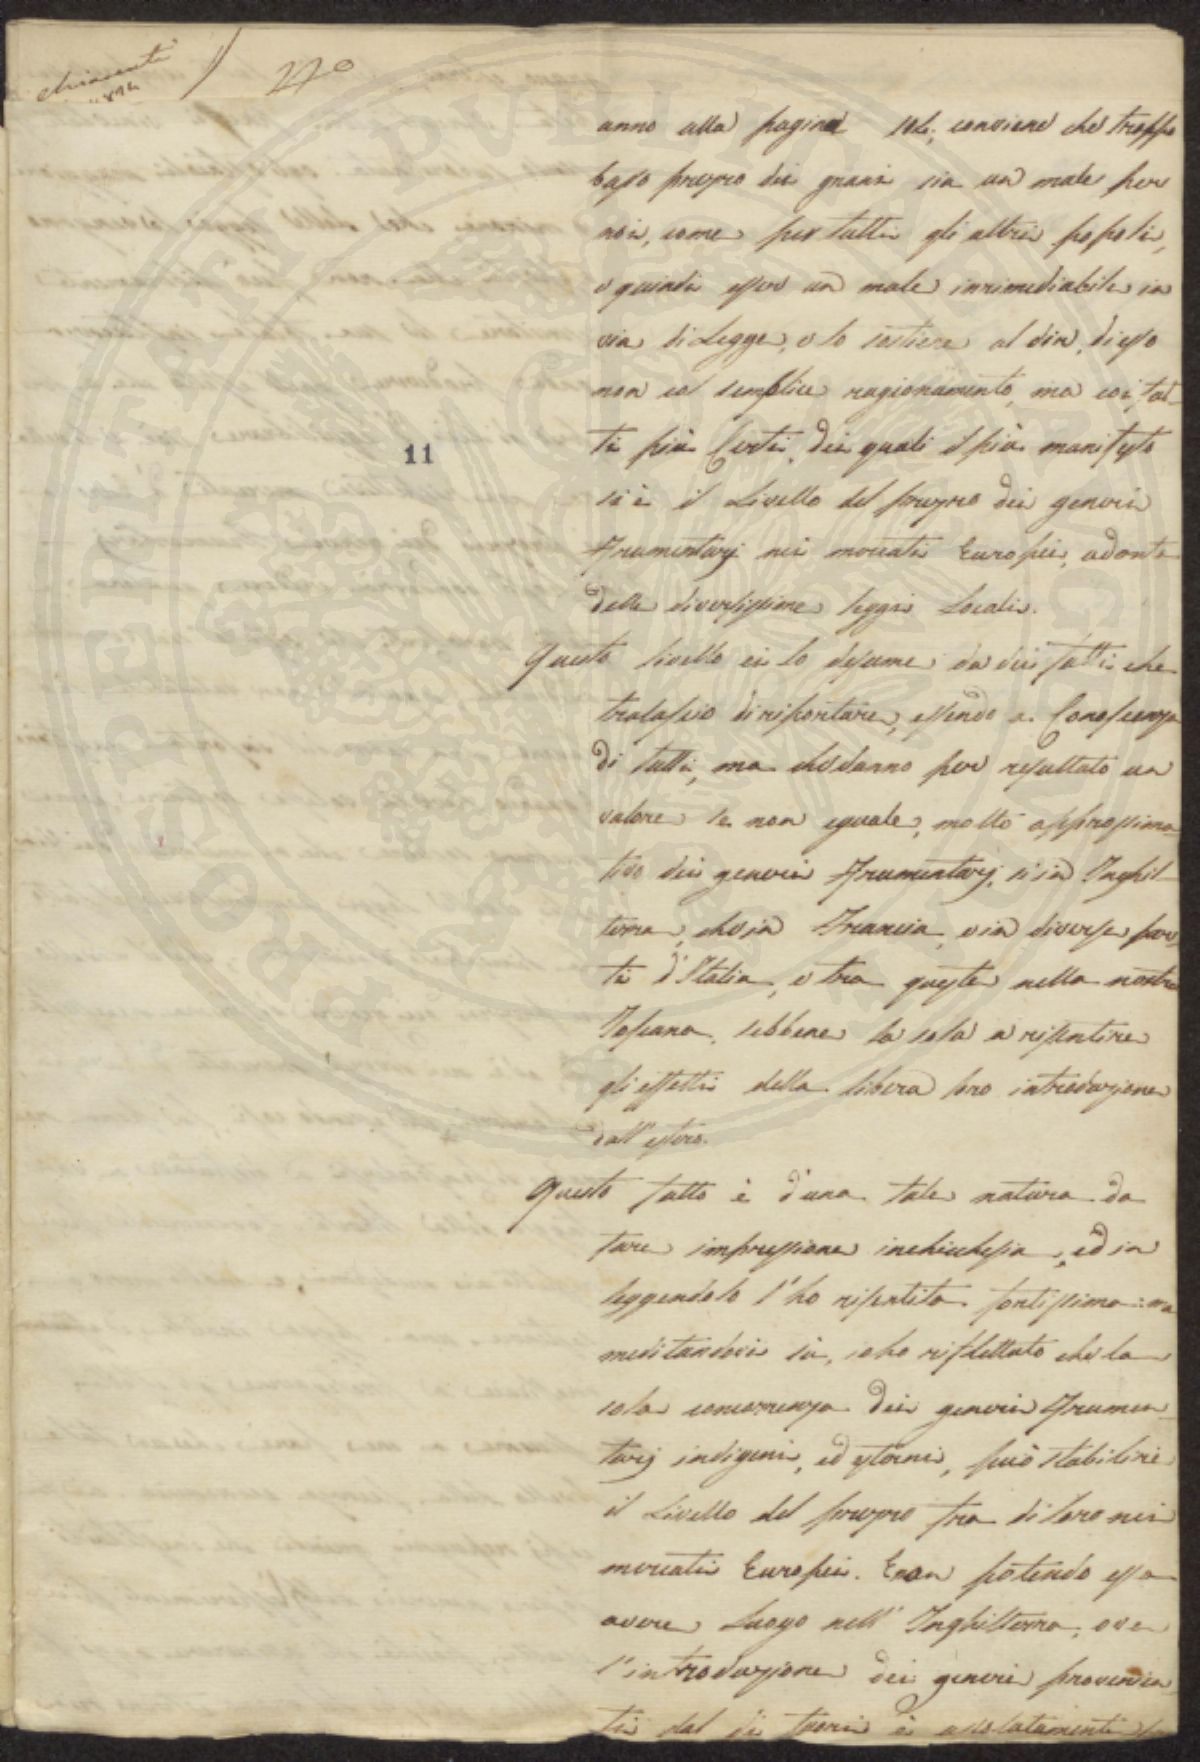 270
anno alla pagina 104, conviene che troppo
basso prezzo dei grani sia un male per
noi, come per tutti gli altri popoli,
e quindi esser un male inrimediabile in
via di Legge, e lo sostiene al dir, di esso
non col semplice ragionamento, ma coi fat-
ti più Certi, dei quali il più manifesto
si è il Livello del prezzo dei generi
frumentarj nei mercati Europei, ad onta
delle diversissime leggi Locali.
Questo livello ei lo desume da dei fatti che
tralascio di riportare, essendo a Conoscenza
di tutti, ma che danno per resultato un
valore se non eguale, molto approssima-
tivo dei generi frumentarj, sì in Inghil-
terra, che in Francia, e in diverse par-
ti d'Italia, e tra queste nella nostra
Toscana, sebbene la sola a risentire
gli effetti della libera loro introduzione
dall'estero.
Questo fatto è d'una tale natura da
fare impressione inchicchesia, ed in
leggendolo l'ho risentita fortissima: ma
meditandovi sù, io ho riflettuto che la
sola concorrenza dei generi frumen-
tarj indigeni, ed esterni, può stabilire
il Livello del prezzo fra di loro nei
mercati Europei. E non potendo essa
avere Luogo nell'Inghilterra, ove
l'introduzione dei generi provenien-
ti dal di fuori è assolutamente
11